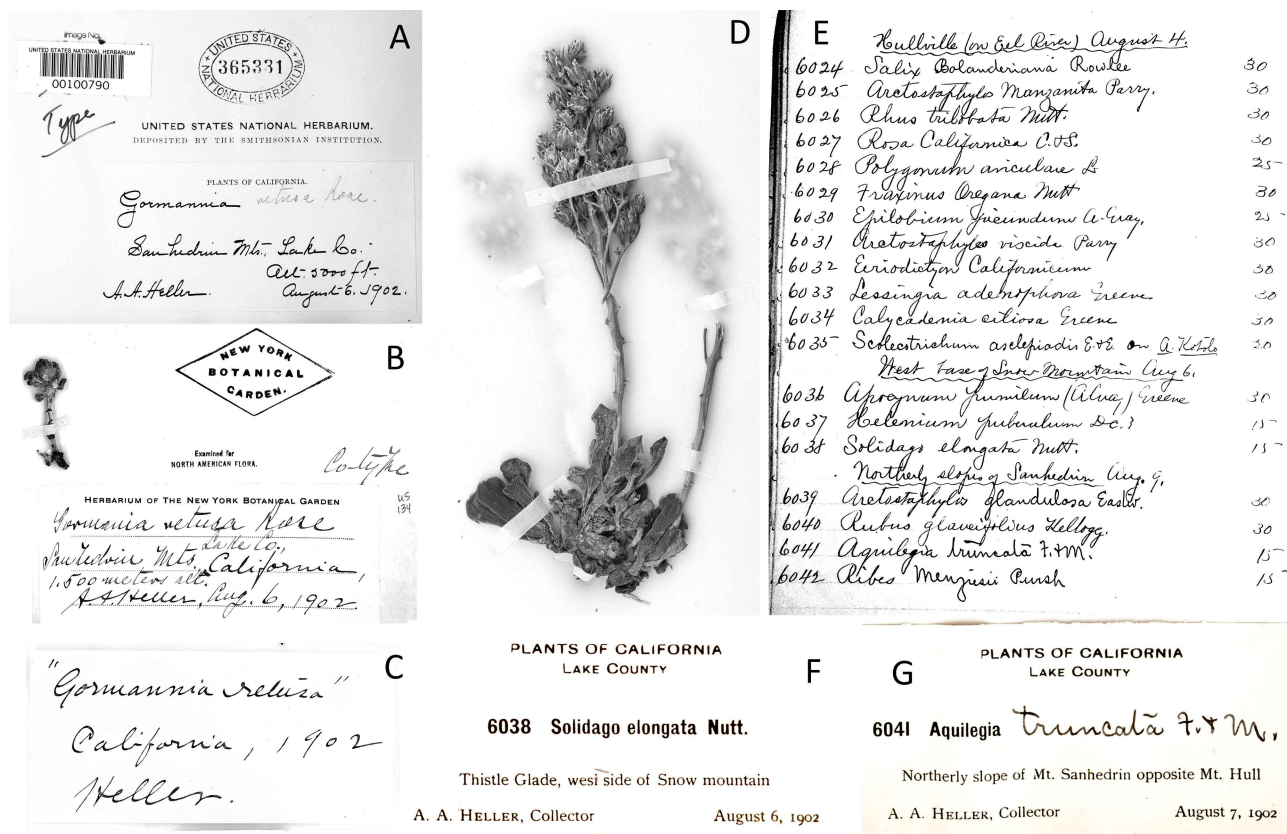 A
Image No.
UNITED STATES NATIONAL HERBARIUM
00100790
UNITED STATES
365331
NATIONAL HERBARIUM
Type
UNITED STATES NATIONAL HERBARIUM.
DEPOSITED BY THE SMITHSONIAN INSTITUTION.
PLANTS OF CALIFORNIA.
Gormannia retusa Rose.
Sanhedrin Mts., Lake Co.
Alt. 5000 ft.
A.A. Heller. August 6, 1902.
B
NEW YORK
BOTANICAL
GARDEN.
Examined for
NORTH AMERICAN FLORA.
Co-type
HERBARIUM OF THE NEW YORK BOTANICAL GARDEN
US
134
Gormania retusa Rose
Lake Co.,
Sanhedrin Mts., California,
1.500 meters alt.
A.A. Heller, Aug. 6, 1902
C
"Gormannia retusa"
California, 1902
Heller.
D
E
Hullville (on Eel River) August 4.
6024 Salix Bolanderiana Rowlee 30
6025 Arctostaphylos Manzanita Parry. 30
6026 Rhus trilobata Nutt. 30
6027 Rosa Californica C.&S. 30
6028 Polygonum aviculare L 25
6029 Fraxinus Oregana Nutt 30
6030 Epilobium jucundum A. Gray. 25
6031 Arctostaphylos viscida Parry 30
6032 Eriodictyon Californicum 30
6033 Lessingia adenophora Greene 30
6034 Calycadenia ciliosa Greene 30
6035 Scolecotrichum asclepiadis E&E. on A. 20
West base of Snow Mountain Aug 6.
6036 Apocynum pumilum (A Gray) Greene 30
6037 Helenium puberulum Dc.? 15
6038 Solidago elongata Nutt. 15
Northerly slopes of Sanhedrin Aug. 9,
6039 Arctostaphylos glandulosa Eastw. 30
6040 Rubus glaucifolius Kellogg. 30
6041 Aquilegia truncata F.&M. 15
6042 Ribes Menziesii Pursh 15
F
PLANTS OF CALIFORNIA
LAKE COUNTY
6038 Solidago elongata Nutt.
Thistle Glade, west side of Snow mountain
A. A. HELLER, Collector August 6, 1902
G
PLANTS OF CALIFORNIA
LAKE COUNTY
6041 Aquilegia truncata F. & M.
Northerly slope of Mt. Sanhedrin opposite Mt. Hull
A. A. HELLER, Collector August 7, 1902